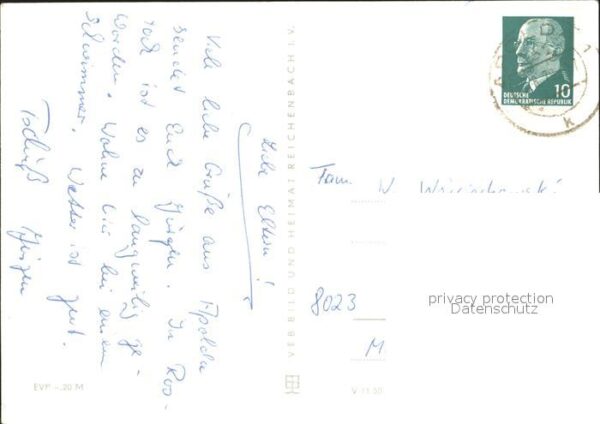 Liebe Eltern!
Viele liebe Grüße aus Apolda
sendet Euch Jürgen. In Ros-
ist es zu langweilig ge-
worden. Wohne hier bei einem
Schwimmer. Wetter ist gut.
Tschüß Jürgen
EVP -.20 M
VEB BILD UND HEIMAT REICHENBACH I. V.
V 11 50
10
DEUTSCHE
DEMOKRATISCHE REPUBLIK
Fam. W.
8023
M
privacy protection
Datenschutz